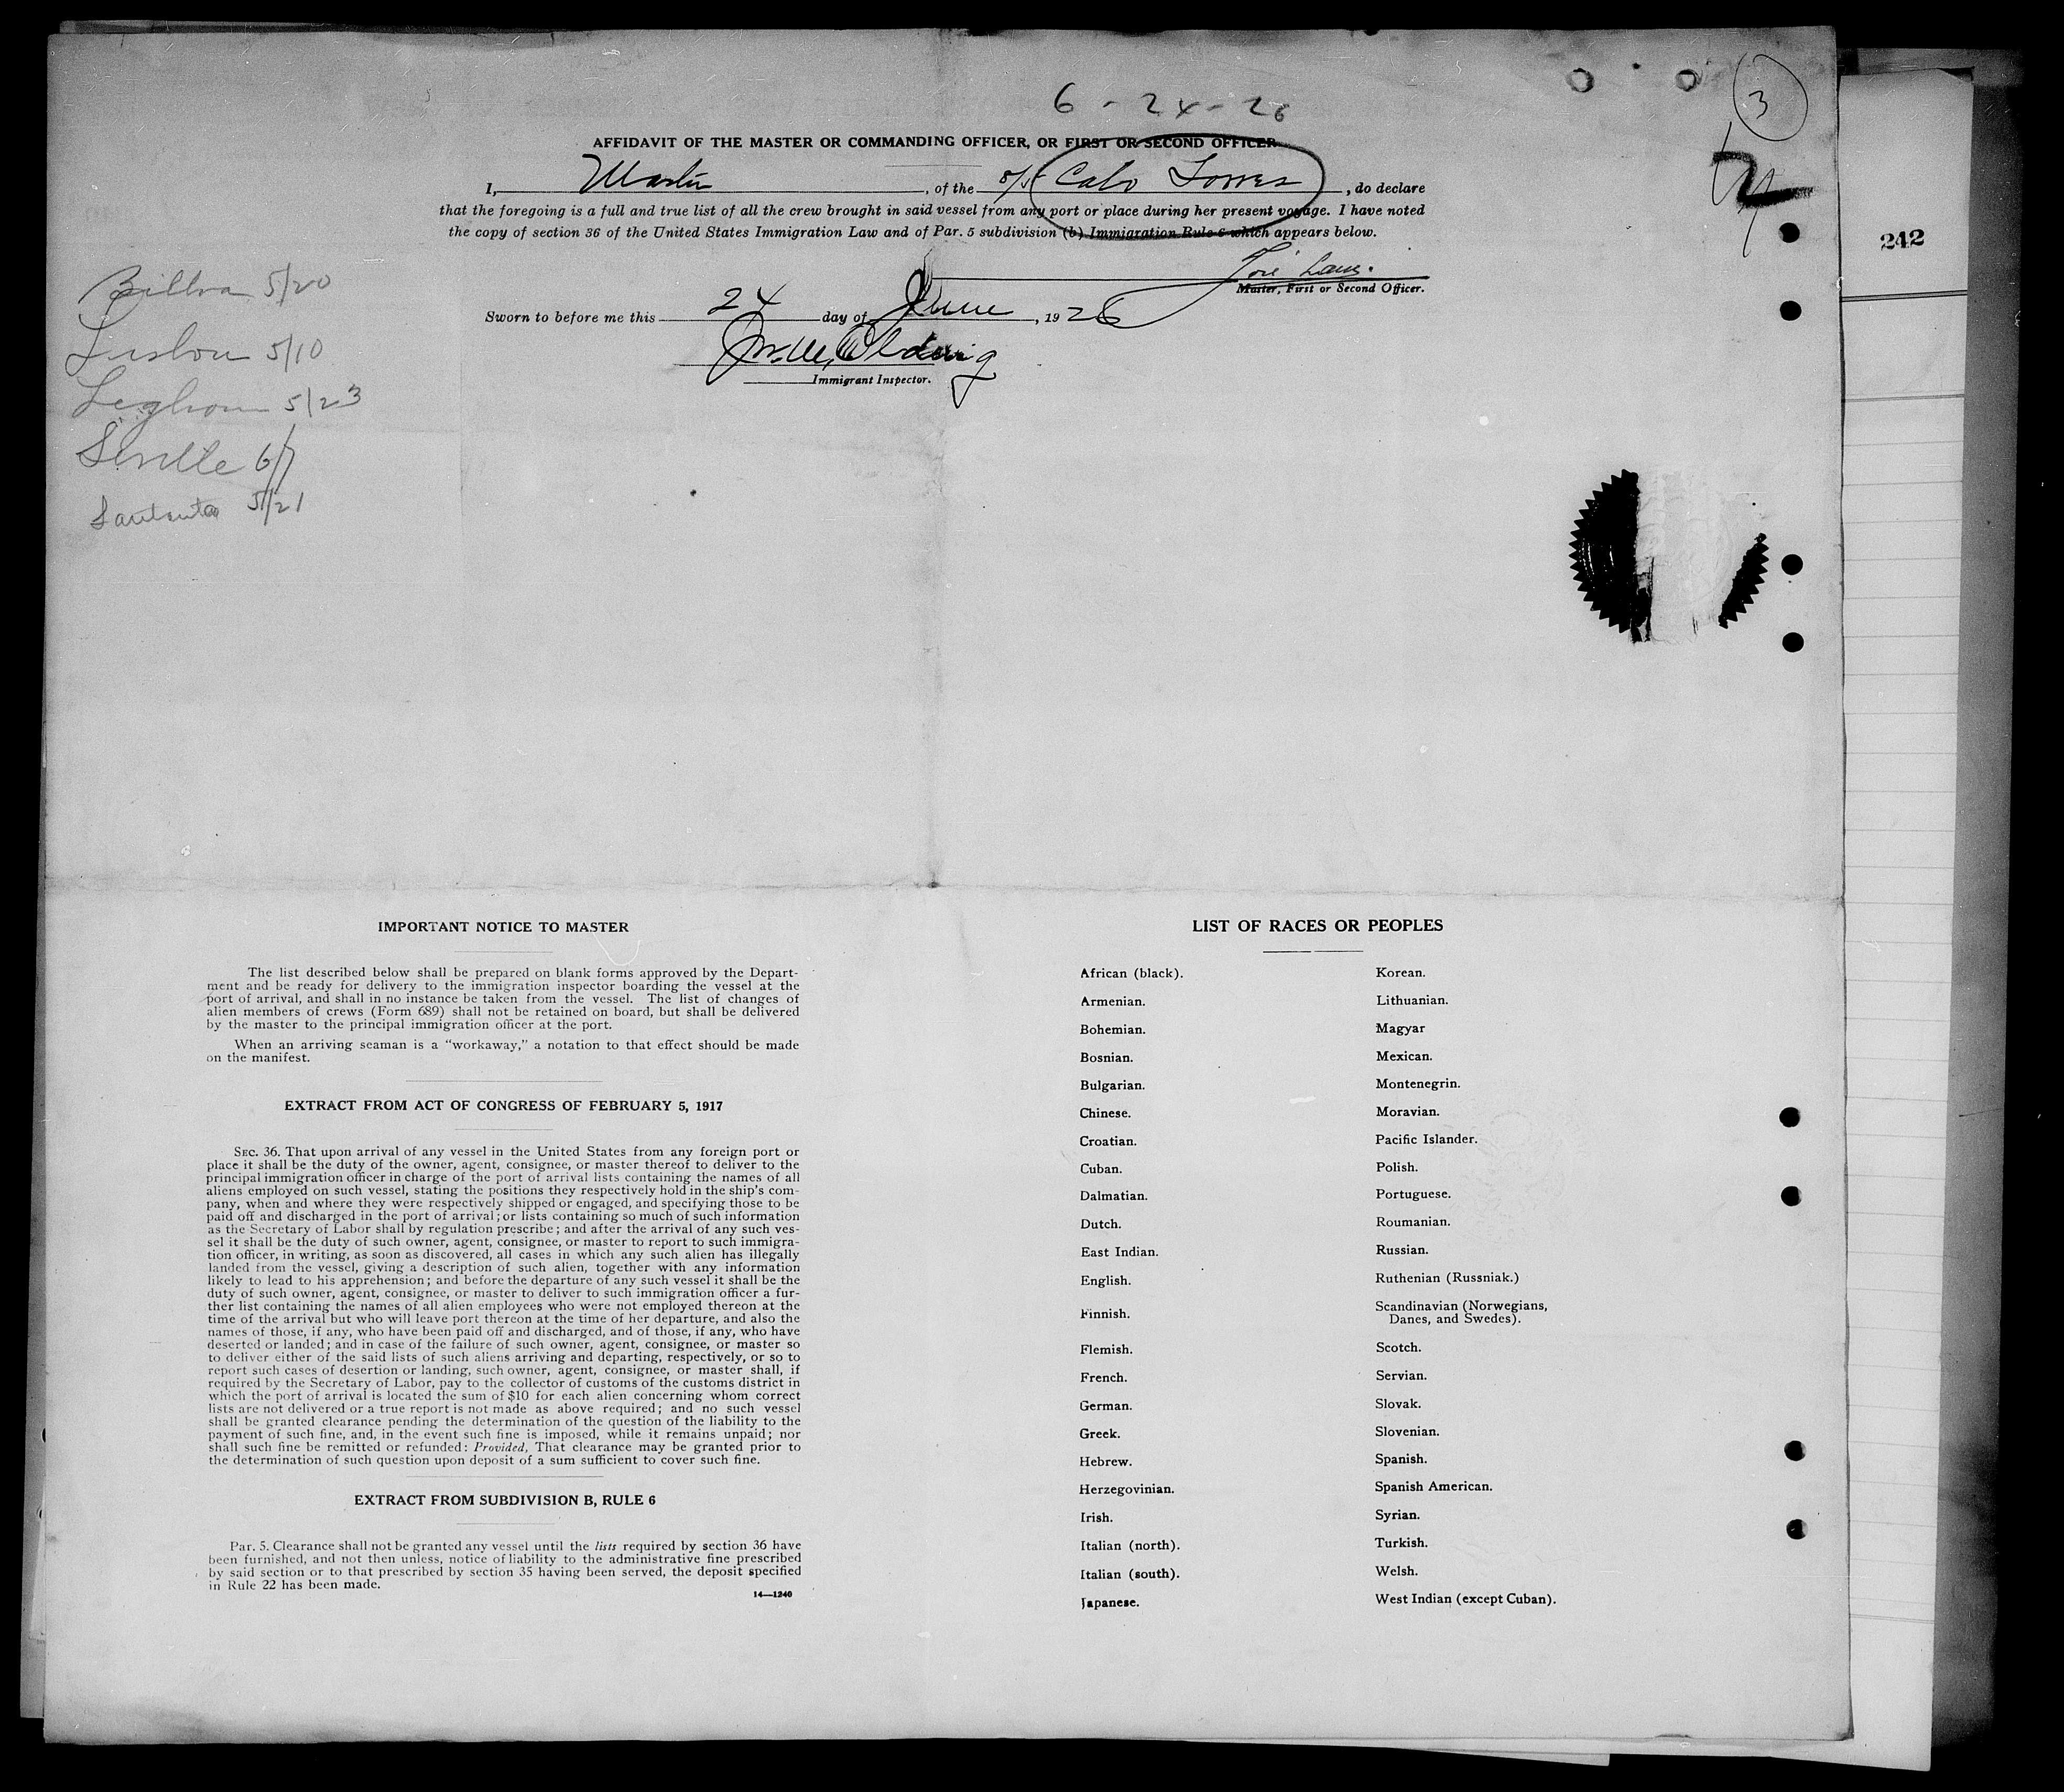 6 - 24 - 26
3
242
AFFIDAVIT OF THE MASTER OR COMMANDING OFFICER, OR FIRST OR SECOND OFFICER
I, Master, of the S/S Cabo Torres, do declare
that the foregoing is a full and true list of all the crew brought in said vessel from any port or place during her present voyage. I have noted
the copy of section 36 of the United States Immigration Law and of Par. 5 subdivision (b) Immigration Rule 6 which appears below.
Master, First or Second Officer.
Sworn to before me this 24 day of June, 1926
Immigrant Inspector.
Bilboa 5/20
Lisbon 5/10
Leghorn 5/23
Seville 6/7
5/21
IMPORTANT NOTICE TO MASTER
The list described below shall be prepared on blank forms approved by the Depart-
ment and be ready for delivery to the immigration inspector boarding the vessel at the
port of arrival, and shall in no instance be taken from the vessel. The list of changes of
alien members of crews (Form 689) shall not be retained on board, but shall be delivered
by the master to the principal immigration officer at the port.
When an arriving seaman is a “workaway,” a notation to that effect should be made
on the manifest.
EXTRACT FROM ACT OF CONGRESS OF FEBRUARY 5, 1917
SEC. 36. That upon arrival of any vessel in the United States from any foreign port or
place it shall be the duty of the owner, agent, consignee, or master thereof to deliver to the
principal immigration officer in charge of the port of arrival lists containing the names of all
aliens employed on such vessel, stating the positions they respectively hold in the ship's com-
pany, when and where they were respectively shipped or engaged, and specifying those to be
paid off and discharged in the port of arrival; or lists containing so much of such information
as the Secretary of Labor shall by regulation prescribe; and after the arrival of any such ves-
sel it shall be the duty of such owner, agent, consignee, or master to report to such immigra-
tion officer, in writing, as soon as discovered, all cases in which any such alien has illegally
landed from the vessel, giving a description of such alien, together with any information
likely to lead to his apprehension; and before the departure of any such vessel it shall be the
duty of such owner, agent, consignee, or master to deliver to such immigration officer a fur-
ther list containing the names of all alien employees who were not employed thereon at the
time of the arrival but who will leave port thereon at the time of her departure, and also the
names of those, if any, who have been paid off and discharged, and of those, if any, who have
deserted or landed; and in case of the failure of such owner, agent, consignee, or master so
to deliver either of the said lists of such aliens arriving and departing, respectively, or so to
report such cases of desertion or landing, such owner, agent, consignee, or master shall, if
required by the Secretary of Labor, pay to the collector of customs of the customs district in
which the port of arrival is located the sum of $10 for each alien concerning whom correct
lists are not delivered or a true report is not made as above required; and no such vessel
shall be granted clearance pending the determination of the question of the liability to the
payment of such fine, and, in the event such fine is imposed, while it remains unpaid; nor
shall such fine be remitted or refunded: Provided, That clearance may be granted prior to
the determination of such question upon deposit of a sum sufficient to cover such fine.
EXTRACT FROM SUBDIVISION B, RULE 6
Par. 5. Clearance shall not be granted any vessel until the lists required by section 36 have
been furnished, and not then unless, notice of liability to the administrative fine prescribed
by said section or to that prescribed by section 35 having been served, the deposit specified
in Rule 22 has been made.
14—1240
LIST OF RACES OR PEOPLES
African (black).
Armenian.
Bohemian.
Bosnian.
Bulgarian.
Chinese.
Croatian.
Cuban.
Dalmatian.
Dutch.
East Indian.
English.
Finnish.
Flemish.
French.
German.
Greek.
Hebrew.
Herzegovinian.
Irish.
Italian (north).
Italian (south).
Japanese.
Korean.
Lithuanian.
Magyar
Mexican.
Montenegrin.
Moravian.
Pacific Islander.
Polish.
Portuguese.
Roumanian.
Russian.
Ruthenian (Russniak.)
Scandinavian (Norwegians,
Danes, and Swedes).
Scotch.
Servian.
Slovak.
Slovenian.
Spanish.
Spanish American.
Syrian.
Turkish.
Welsh.
West Indian (except Cuban).